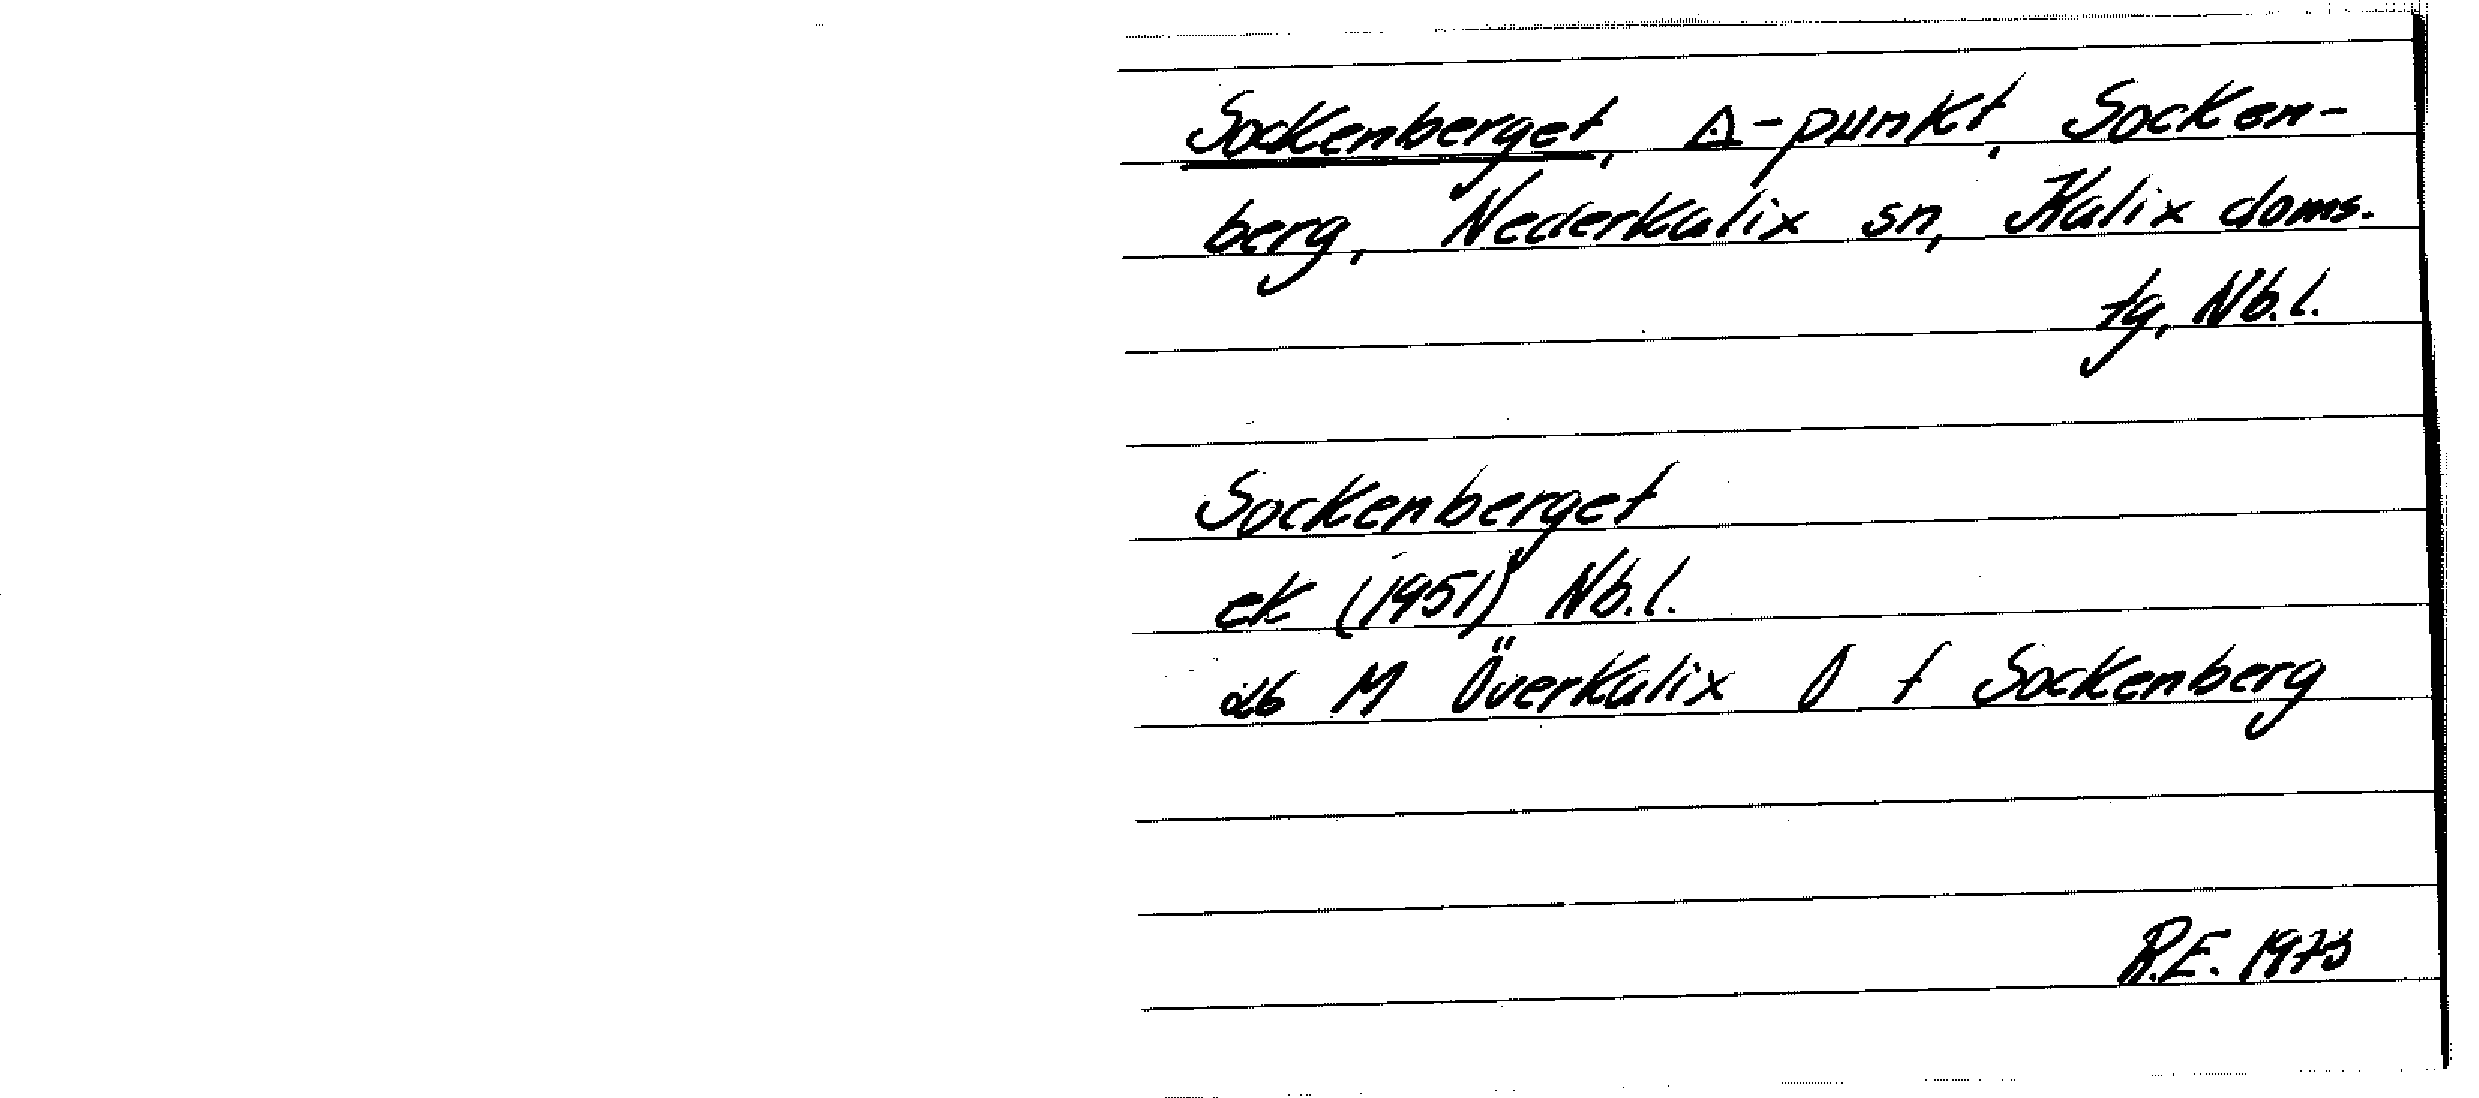 Sockenberget, △-punkt, Socken-
berg, Nederkalix sn, Kalix doms.
tg, Nb.l.
Sockenberget
ek (1951) Nb.l.
26 M Överkalix Ö f Sockenberg
R.E. 1973